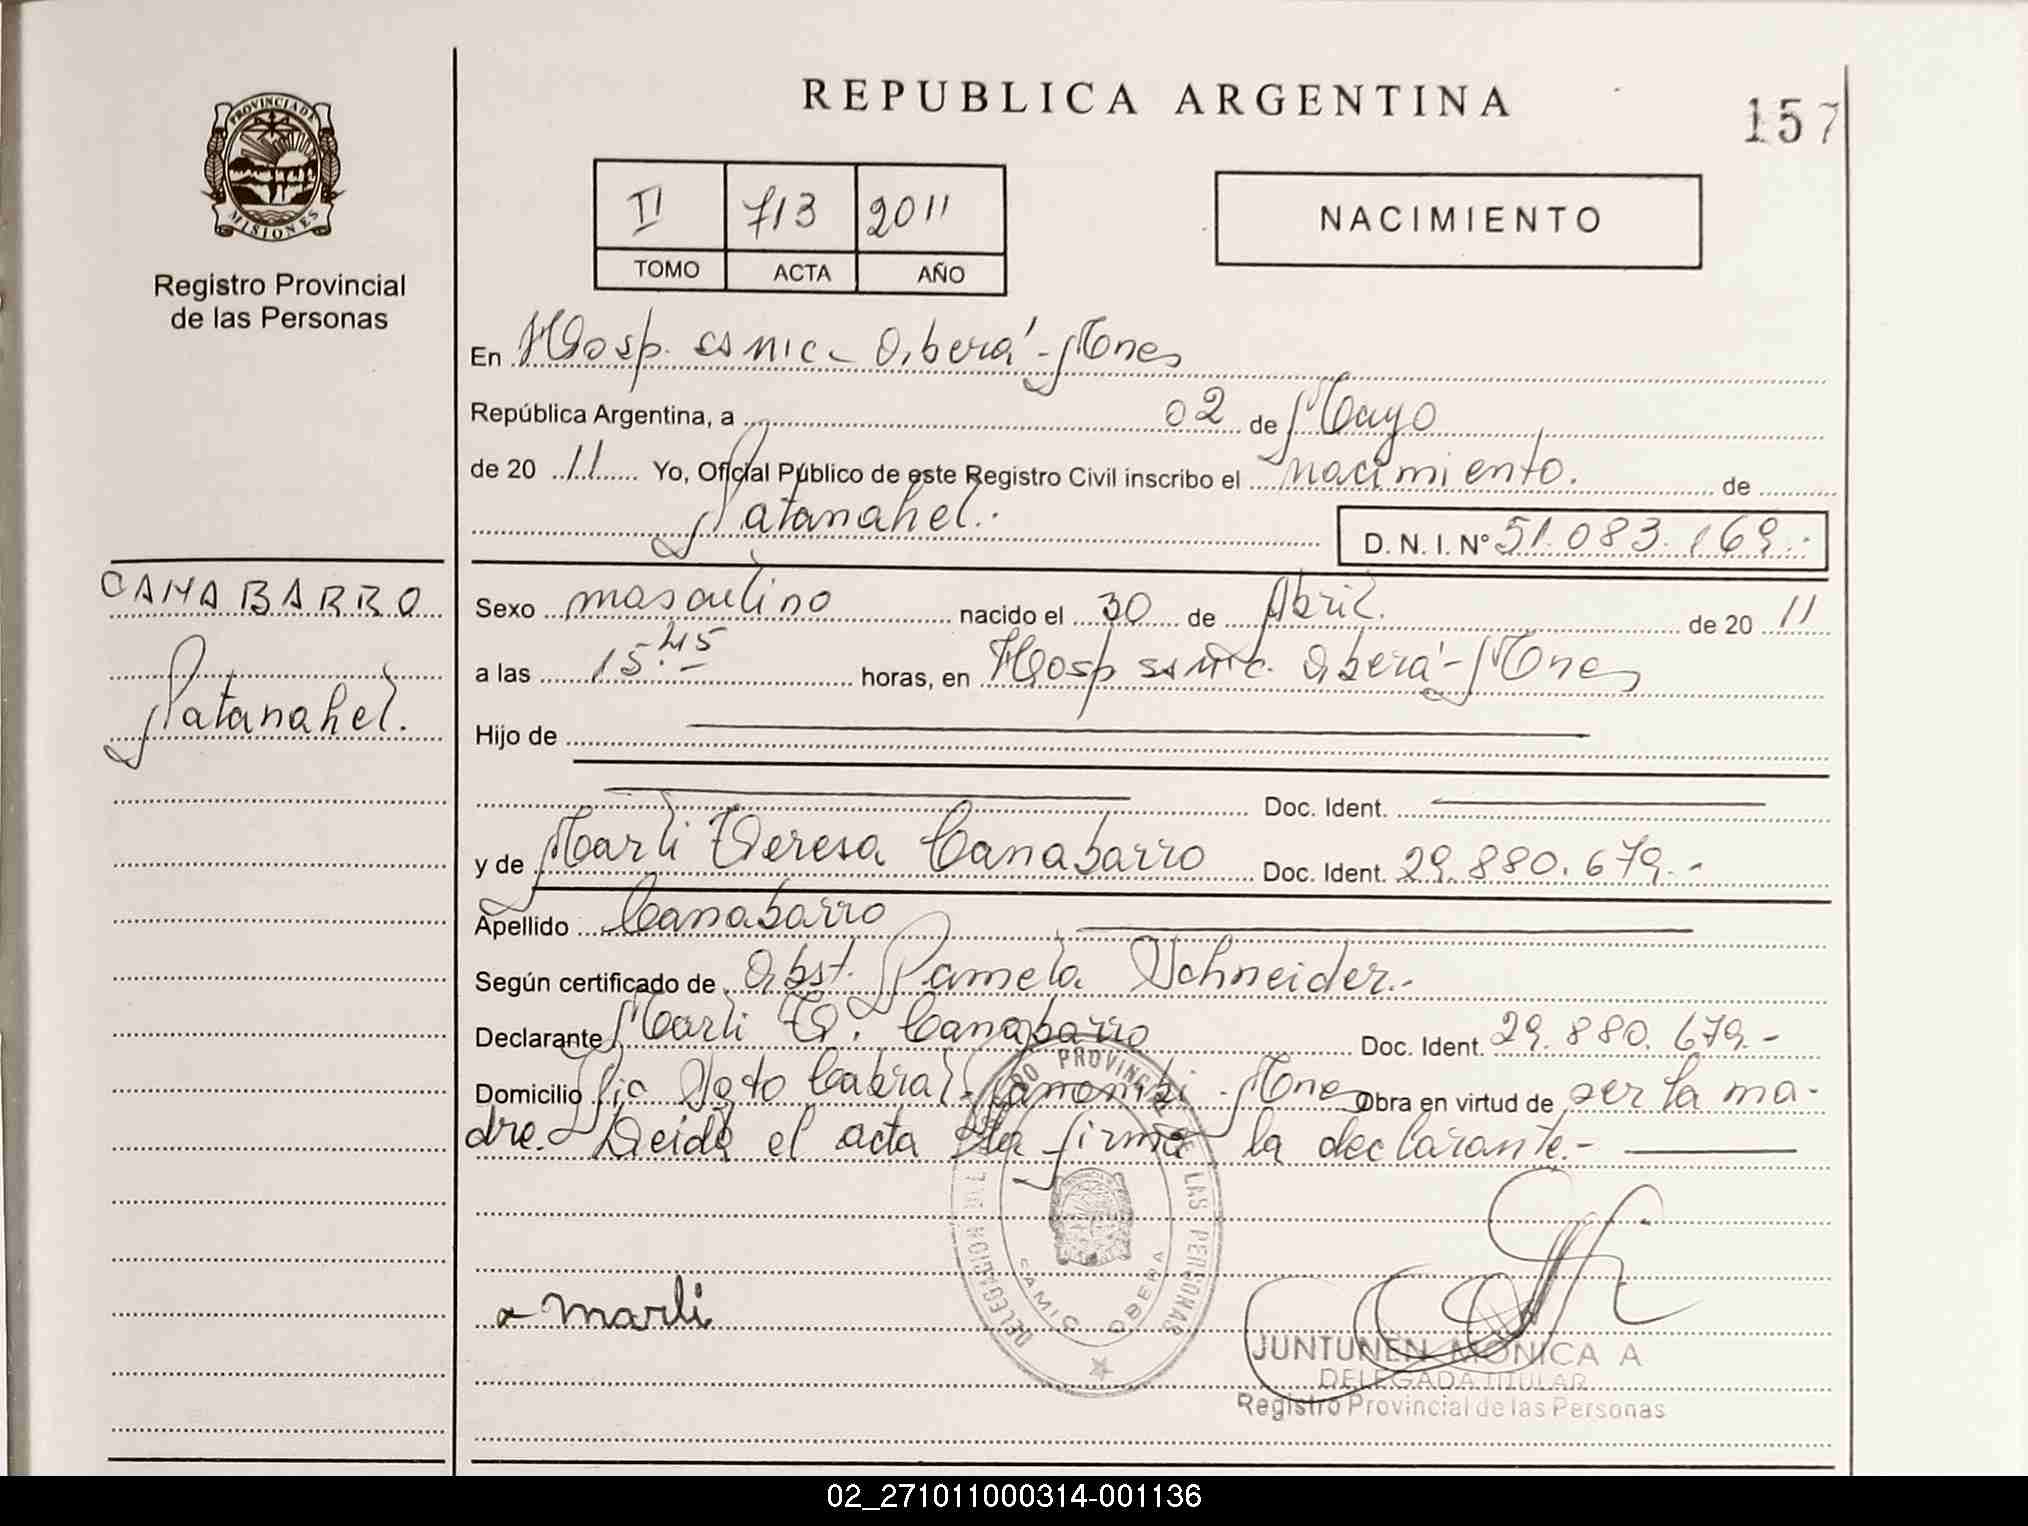 REPUBLICA ARGENTINA
157
PROVINCIA DE
MISIONES
Registro Provincial
de las Personas
II 713 2011
TOMO ACTA AÑO
NACIMIENTO
En Hosp. samic - Oberá - Mnes
República Argentina, a 02 de Mayo
de 20 11 Yo, Oficial Público de este Registro Civil inscribo el nacimiento. de
Natanahel.-
D. N. I. Nº 51.083.169.-
CANABARRO
Natanahel.
Sexo masculino nacido el 30 de Abril. de 20 11
a las 15.45 horas, en Hosp samic. Oberá - Mnes
Hijo de
Doc. Ident.
y de Marli Teresa Canabarro Doc. Ident. 29.880.679.-
Apellido Canabarro
Según certificado de Obst. Pamela Schneider.-
Declarante Marli T. Canabarro Doc. Ident. 29.880.679.-
Domicilio Sgto Cabral - - Mnes Obra en virtud de ser la ma-
dre. - Leida el acta la firma la declarante.-
marli
DELEGACION DEL REGISTRO PROVINCIAL DE LAS PERSONAS
SAMIC OBERA
JUNTUNEN MONICA A
DELEGADA TITULAR
Registro Provincial de las Personas
02_271011000314-001136